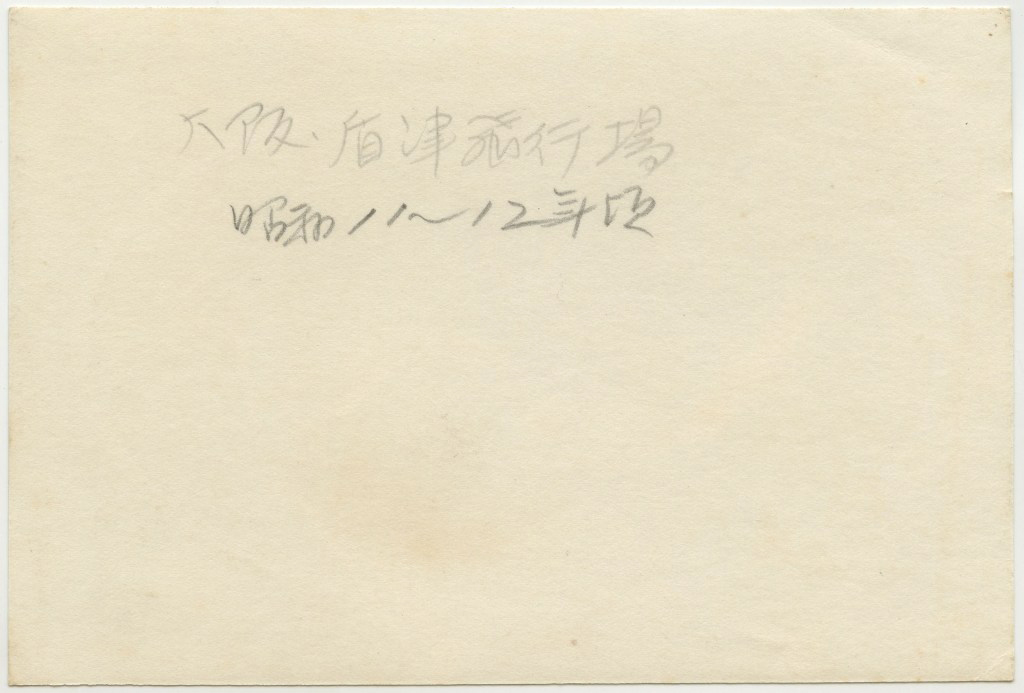 大阪、盾津飛行場
昭和11〜12年頃